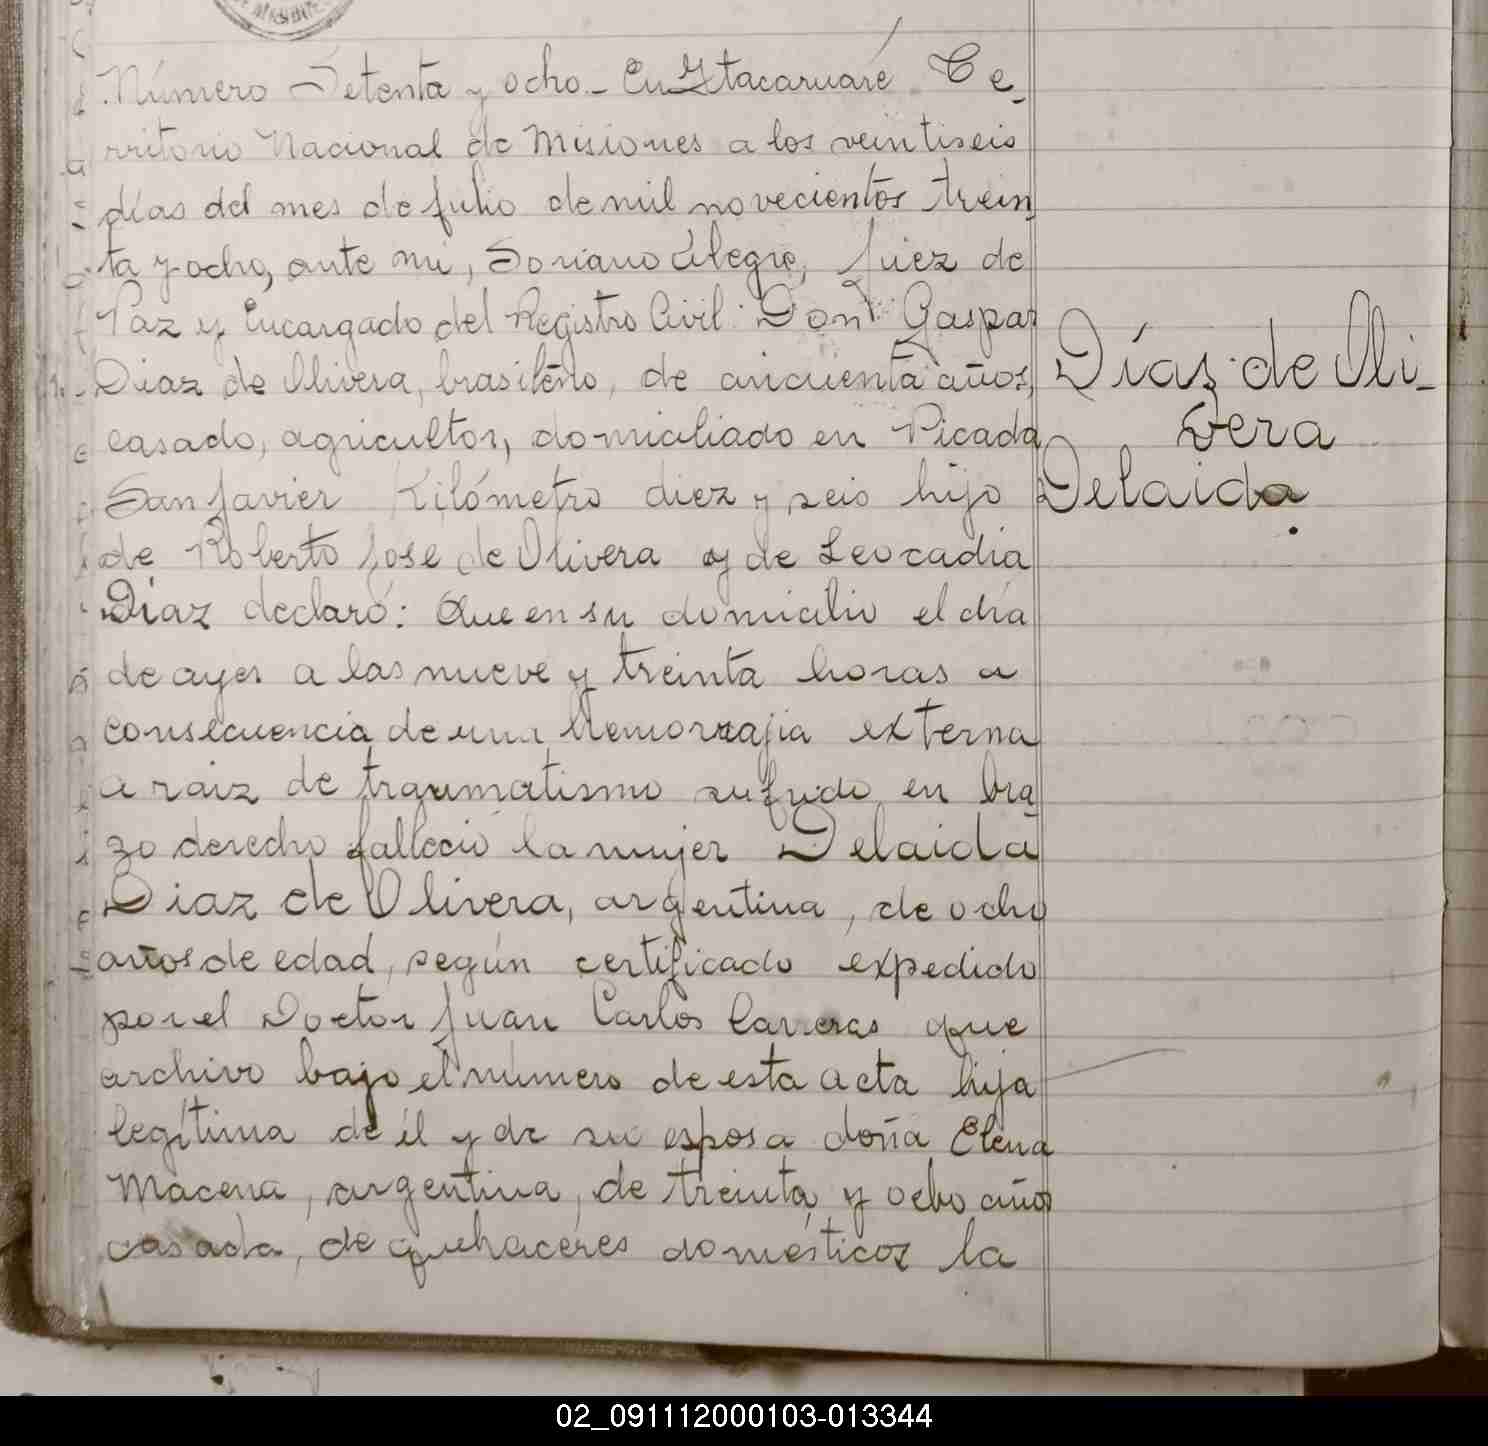 Número Setenta y ocho - En Itacaruaré Te-
rritorio Nacional de Misiones a los veintiseis
días del mes de julio de mil novecientos trein
ta y ocho, ante mi, Soriano Alegre, Juez de
Paz y Encargado del Registro Civil: Don Gaspar
Diaz de Olivera, brasileño, de cincuenta años,
casado, agricultor, domiciliado en Picada
San Javier Kilómetro diez y seis hijo
de Roberto José de Olivera y de Leocadia
Díaz declaró: Que en su domicilio el día
de ayer a las nueve y treinta horas a
consecuencia de una hemorrajia externa
a raiz de traumatismo sufrido en bra
zo derecho falleció la mujer Delaida
Diaz de Olivera, argentina, de ocho
años de edad, según certificado expedido
por el Doctor Juan Carlos Carreras que
archivo bajo el número de esta acta hija
legítima de él y de su esposa doña Elena
Macena, argentina, de treinta y ocho años
casada, de quehaceres domésticos la
Díaz de Oli-
vera
Delaida.
02_091112000103-013344